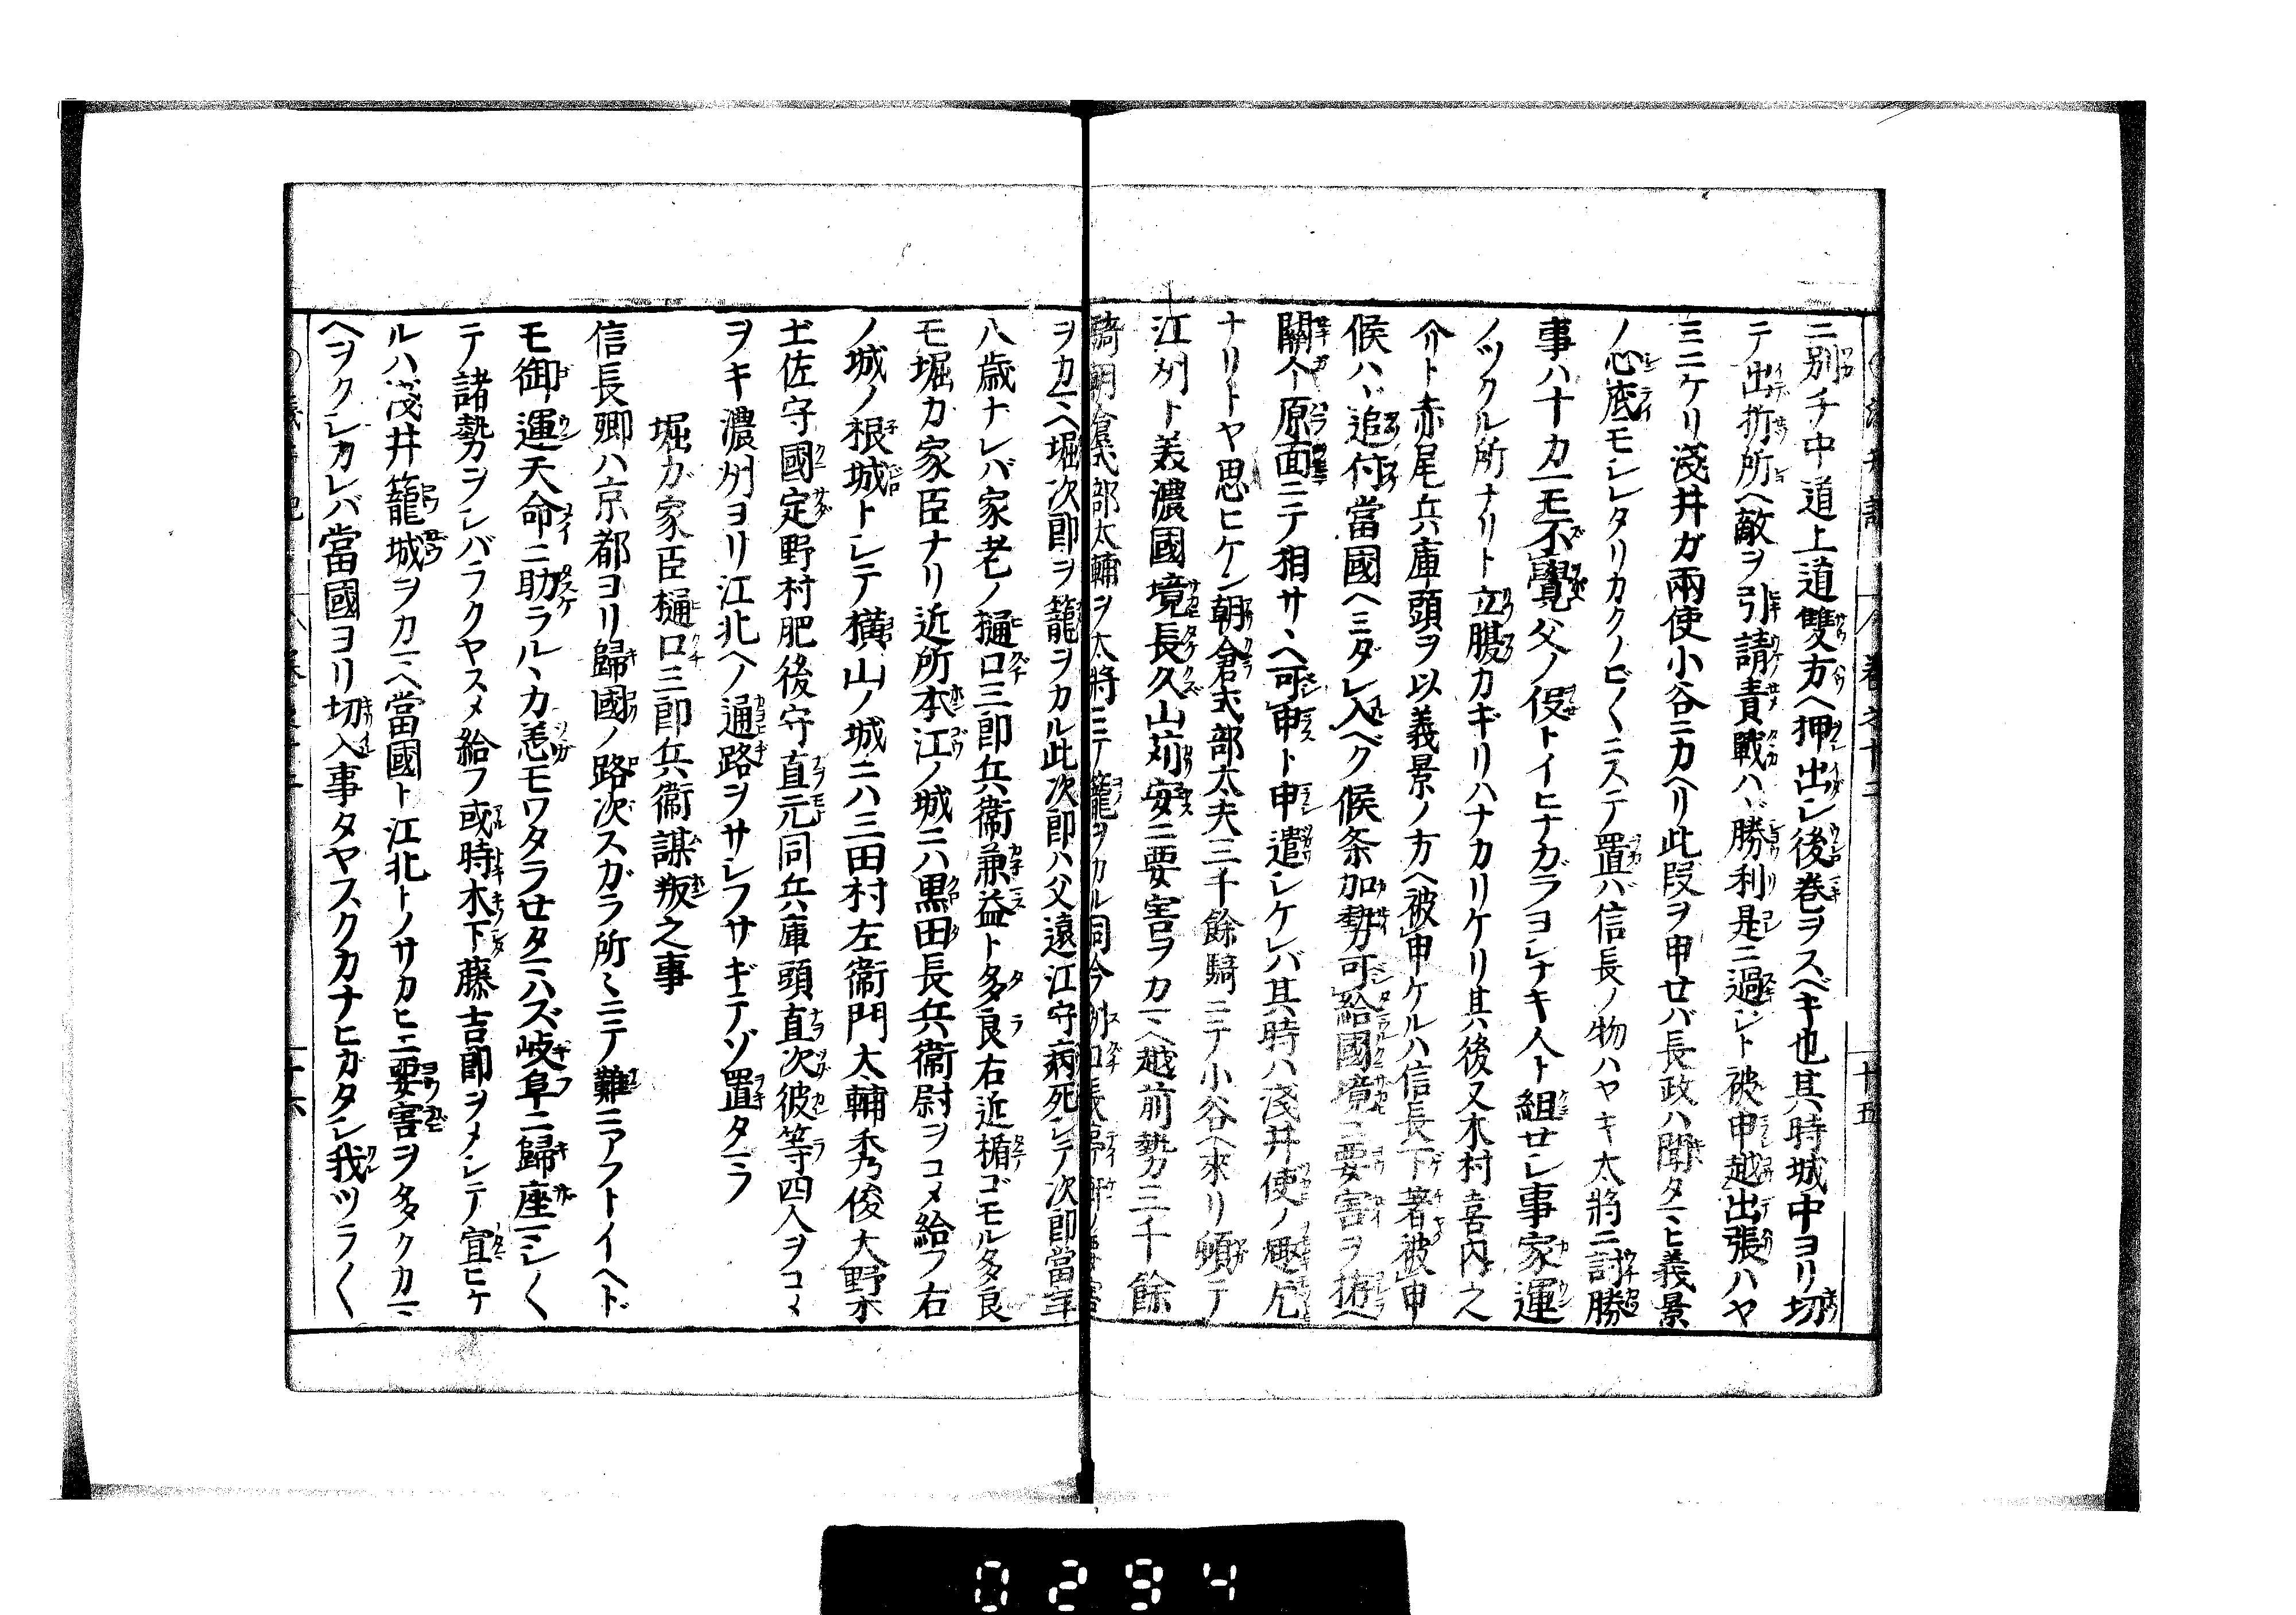 ニ別チ中道上道雙方ヘ押出シ後巻ヲスベキ也其時城中ヨリ切
テ出折所ヘ敵ヲ引請責戰ハヽ勝利是ニ過ジト被申越出張ハヤ
ミニケリ淺井ガ兩使小谷ニカヘリ此段ヲ申せバ長政ハ聞タマヒ義景
ノ心底モシレタリカクノビ〱ニステ置バ信長ノ物ハヤキ太將ニ討勝
事ハ十カ一モ不覺父ノ役トイヒナガラヨシナキ人ト組セシ事家運
ノツクル所ナリト立腹カギリハナカリケリ其後又木村喜内之
介ト赤尾兵庫頭ヲ以義景ノ方ヘ被申ケルハ信長下著被申
候ハヾ追付當國ヘミダレ入ベク候条加勢可給國境ニ要害ヲ拵ヘ
關介原面ニテ相サヽヘ可申ト申遣シケレバ其時ハ淺井使ノ趣尤
ナリトヤ思ヒケン朝倉式部太夫三千餘騎ニテ小谷ヘ來リ頓テ
江州ト美濃國境長久山苅安ニ要害ヲカマヘ越前勢三千餘
騎朝倉式部太輔ヲ太將ニテ籠ヲカル同今
ヲカマヘ堀次郎ヲ籠ヲカル此次郎ハ父遠江守病死シテ次郎當年
八歳ナレバ家老ノ樋口三郎兵衞兼益ト多良右近楯ゴモル多良
モ堀カ家臣ナリ近所本江ノ城ニハ黒田長兵衞尉ヲコメ給フ右
ノ城ノ根城トシテ横山ノ城ニハ三田村左衞門大輔秀俊大野木
土佐守國定野村肥後守直元同兵庫頭直次彼等四人ヲコメ
ヲキ濃州ヨリ江北ヘノ通路ヲサシフサギテゾ置タマフ
堀が家臣樋口三郎兵衞謀叛之事
信長卿ハ京都ヨリ歸國ノ路次スガラ所〻ニテ難ニアフトイヘド
モ御運天命ニ助ラルヽカ恙モワタラせタマハズ岐阜ニ歸座マシ〱
テ諸勢ヲシバラクヤスメ給フ或時木下藤吉郎ヲメシテ宣ヒケ
ルハ淺井籠城ヲカマヘ當國ト江北トノサカヒニ要害ヲ多クカマ
ヘヲクシカレバ當國ヨリ切入事タヤスクカナヒガタシ我ツラ〱